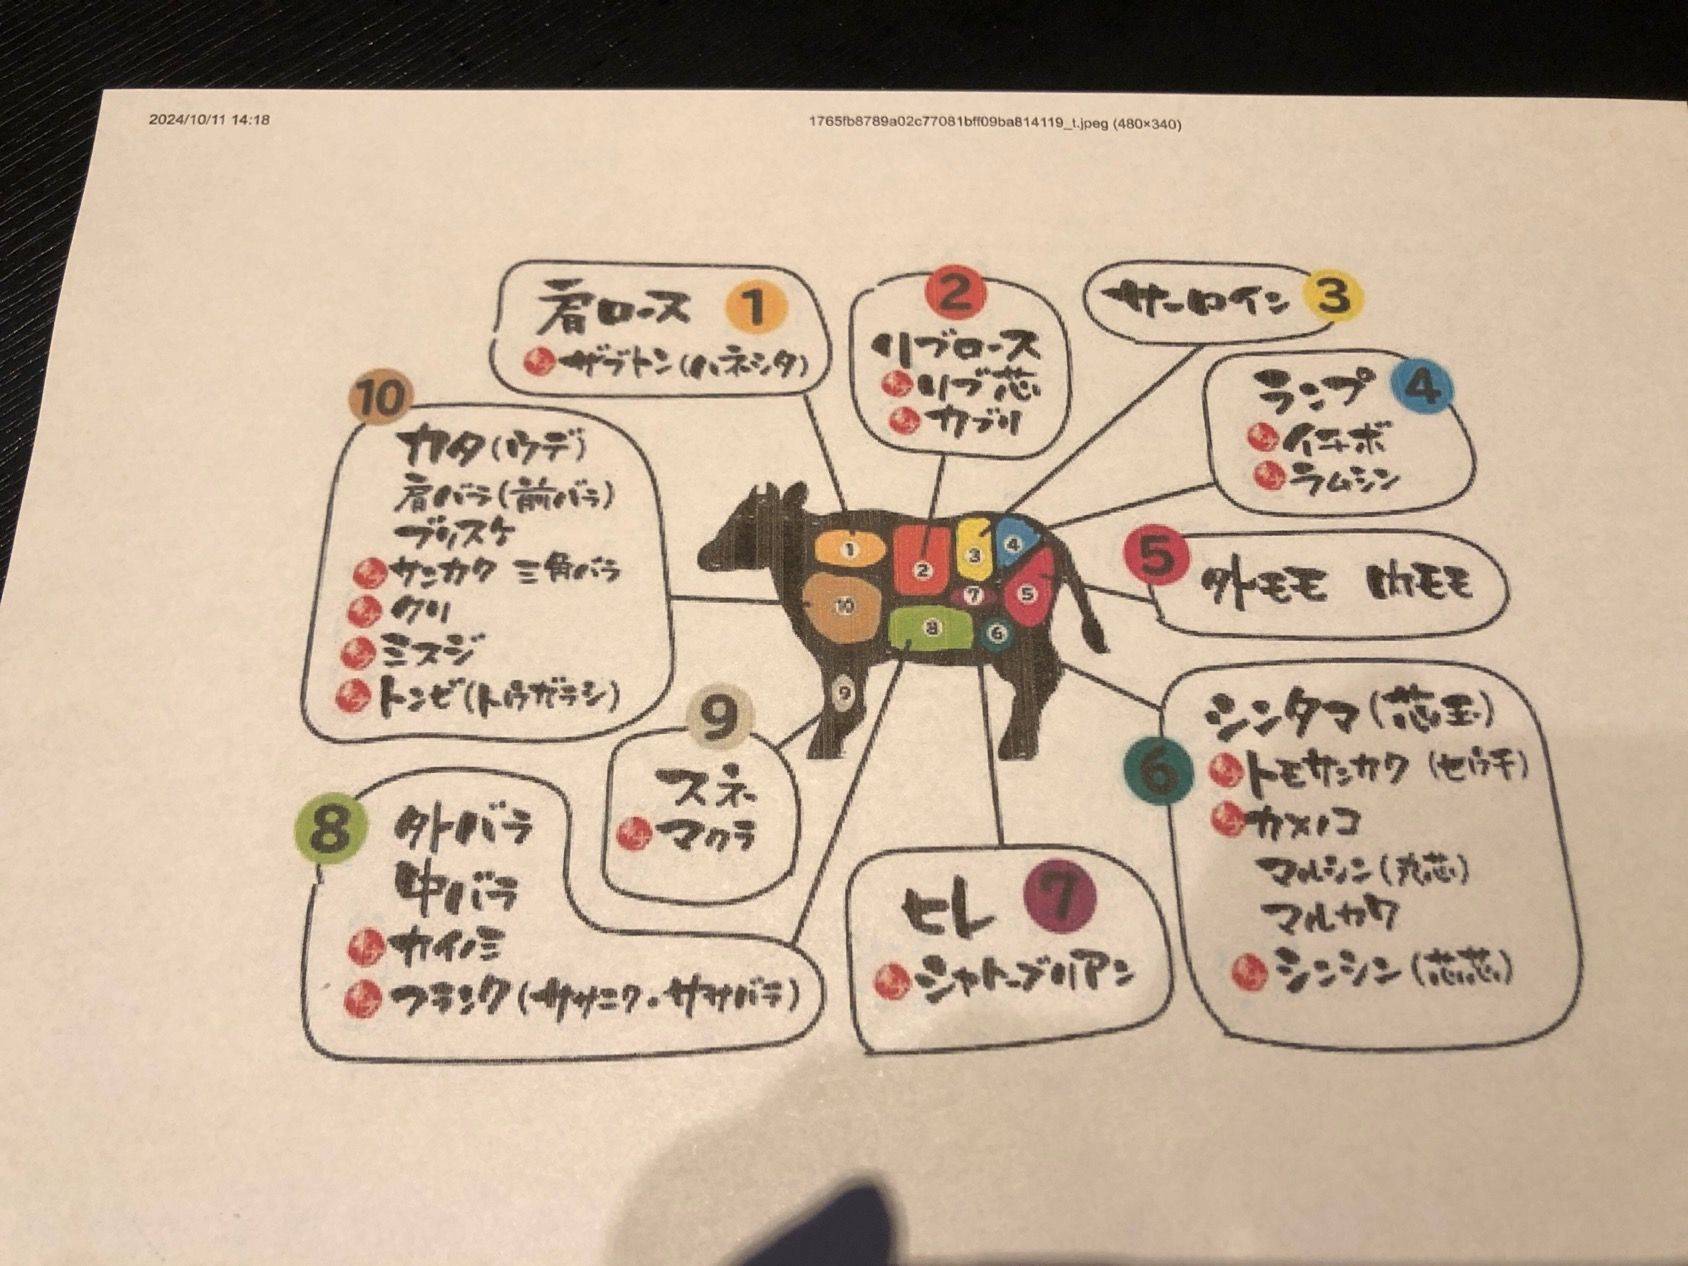 2024/10/11 14:18
1765fb8789a02c77081bff09ba814119_t.jpeg (480×340)
肩ロース 1
ザブトン(ハネシタ)
2
リブロース
リブ芯
カブリ
サーロイン 3
ランプ 4
イチボ
ラムシン
5 外モモ 内モモ
シンタマ(芯玉)
6
トモサンカク(ヒウチ)
カメノコ
マルシン(丸芯)
マルカワ
シンシン(芯芯)
ヒレ 7
シャトーブリアン
8 外バラ
中バラ
カイノミ
フランク(ササニク・ササバラ)
9
スネ
マクラ
10
カタ(ウデ)
肩バラ(前バラ)
ブリスケ
サンカク 三角バラ
クリ
ミスジ
トンビ(トウガラシ)
1
2
3
4
5
6
7
8
9
10